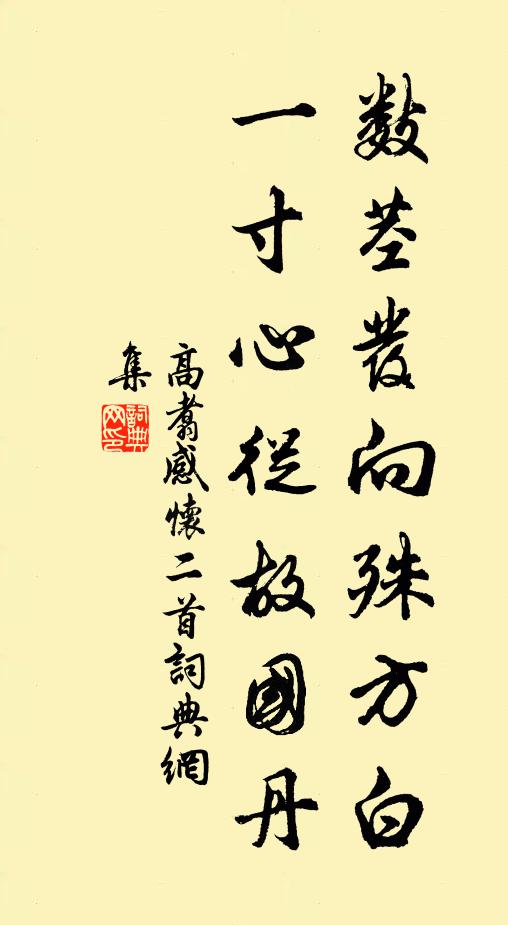 數茎發向殊方白
一寸心從故國丹
高翥感懷二首詞典網
集
詞典网印